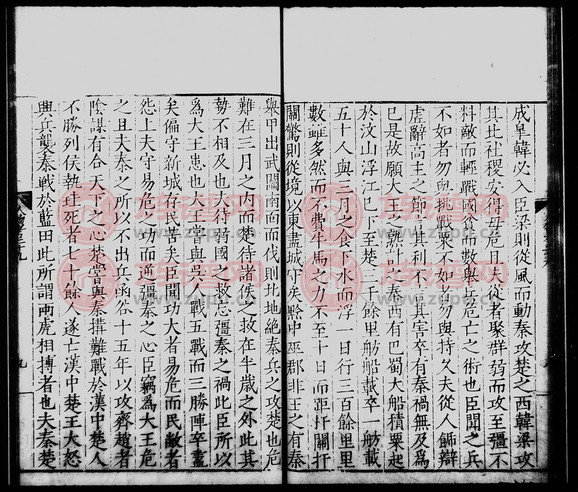 成臯韓必入臣梁則從風而動秦攻楚之西韓梁攻
其北社稷安得毋危且夫從者聚群弱而攻至彊不
料敵而輕戰國貧而數舉兵危亡之術也臣聞之兵
不如者勿與挑戰粟不如者勿與持久夫從人飾辯
虛辭高主之節言其利不言其害卒有秦禍無及爲
已是故願大王之孰計之秦西有巴蜀大船積粟起
於汶山浮江已下至楚三千餘里舫船載卒一舫載
五十人與三月之食下水而浮一日行三百餘里里
數雖多然而不費牛馬之力不至十日而距扞關扞
關驚則從境以東盡城守矣黔中巫郡非王之有秦
舉甲出武關南面而伐則北地絶秦兵之攻楚也危
難在三月之内而楚待諸侯之救在半歲之外此其
勢不相及也夫待弱國之救忘彊秦之禍此臣所以
爲大王患也大王嘗與吳人戰五戰而三勝陣卒盡
矣偏守新城存民苦矣臣聞功大者易危而民敝者
怨上夫守易危之功而逆彊秦之心臣竊爲大王危
之且夫秦之所以不出兵函谷十五年以攻齊趙者
陰謀有合天下之心楚嘗與秦搆難戰於漢中楚人
不勝列侯執珪死者七十餘人遂亡漢中楚王大怒
興兵襲秦戰於藍田此所謂兩虎相搏者也夫秦楚
九
www.zupu.cn
www.zupu.cn
www.zupu.cn
www.zupu.cn